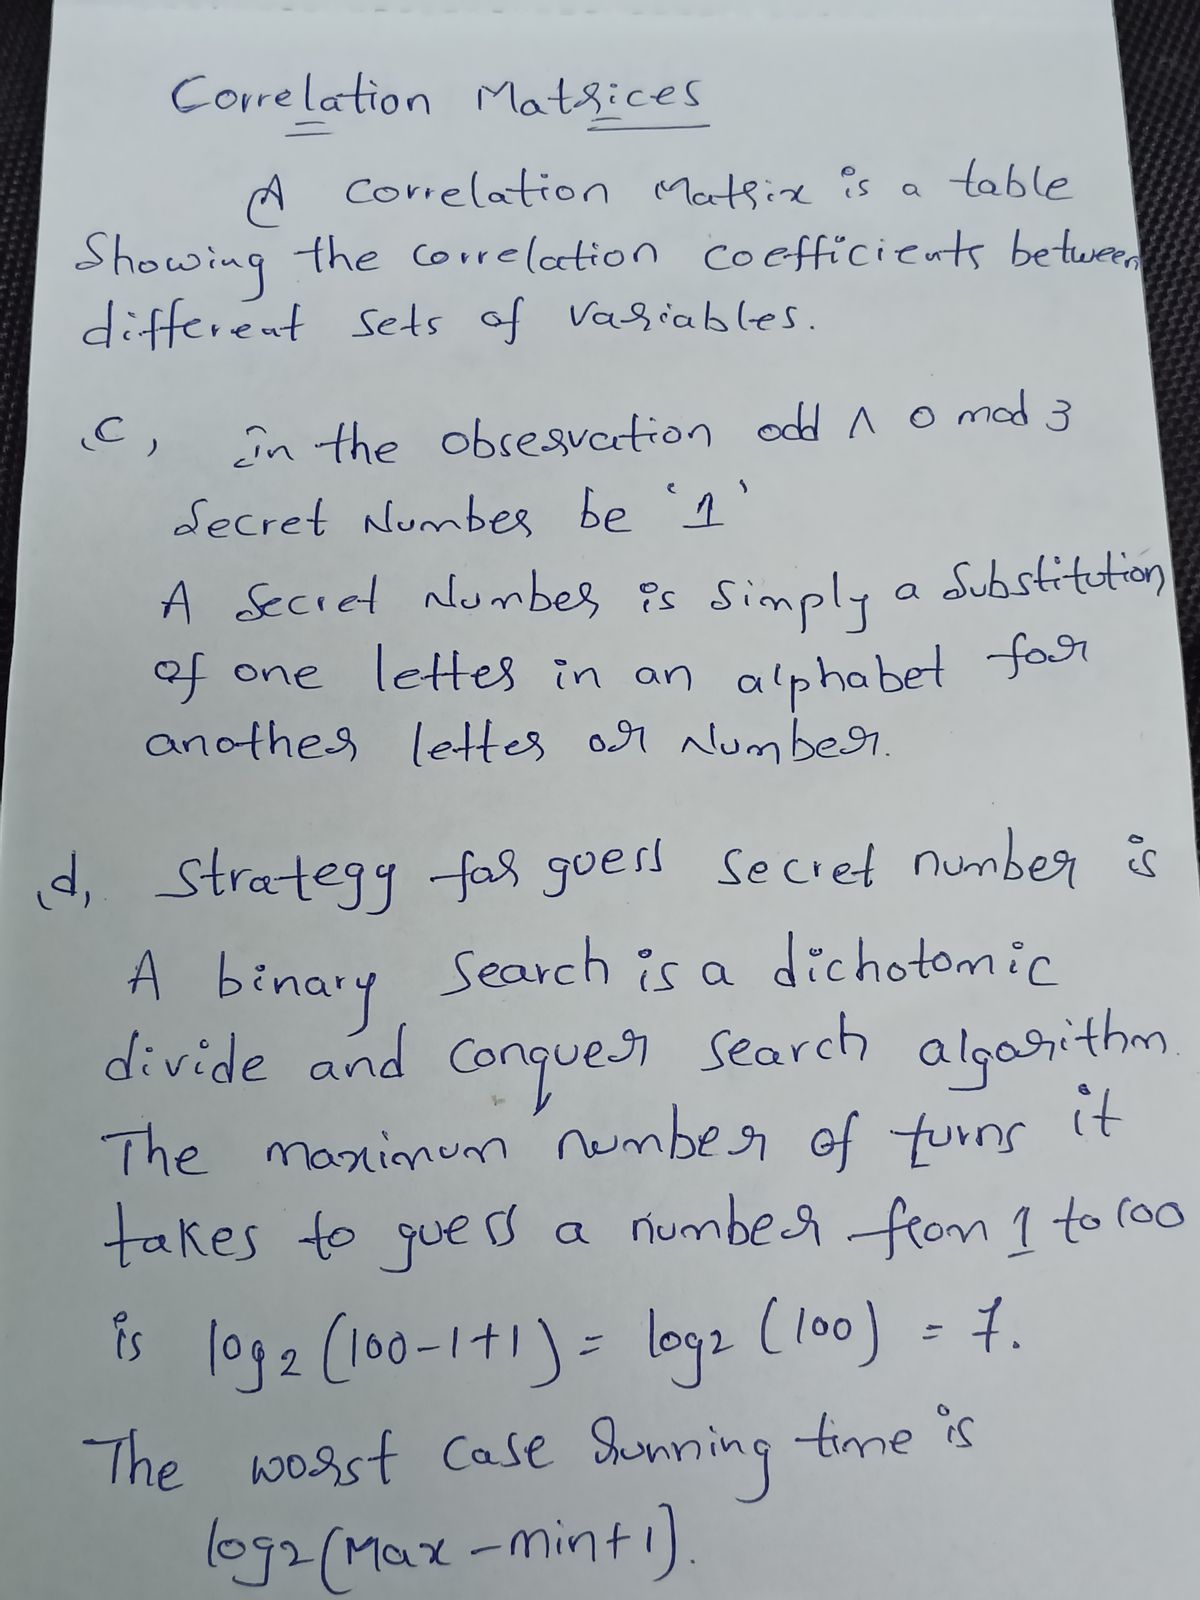 Correlation Matrices
A correlation Matrix is a table
Showing the correlation coefficients between
different sets of variables.
c, in the observation odd ∧ 0 mod 3
Secret Number be '1'
A Secret Number is Simply a Substitution
of one letter in an alphabet for
another letter or Number.
d, Strategy for guess secret number is
A binary Search is a dichotomic
divide and Conquer search algorithm.
The maximum number of turns it
takes to guess a number from 1 to 100
is log2(100-1+1) = log2(100) = 7.
The worst case running time is
log2(Max-min+1).